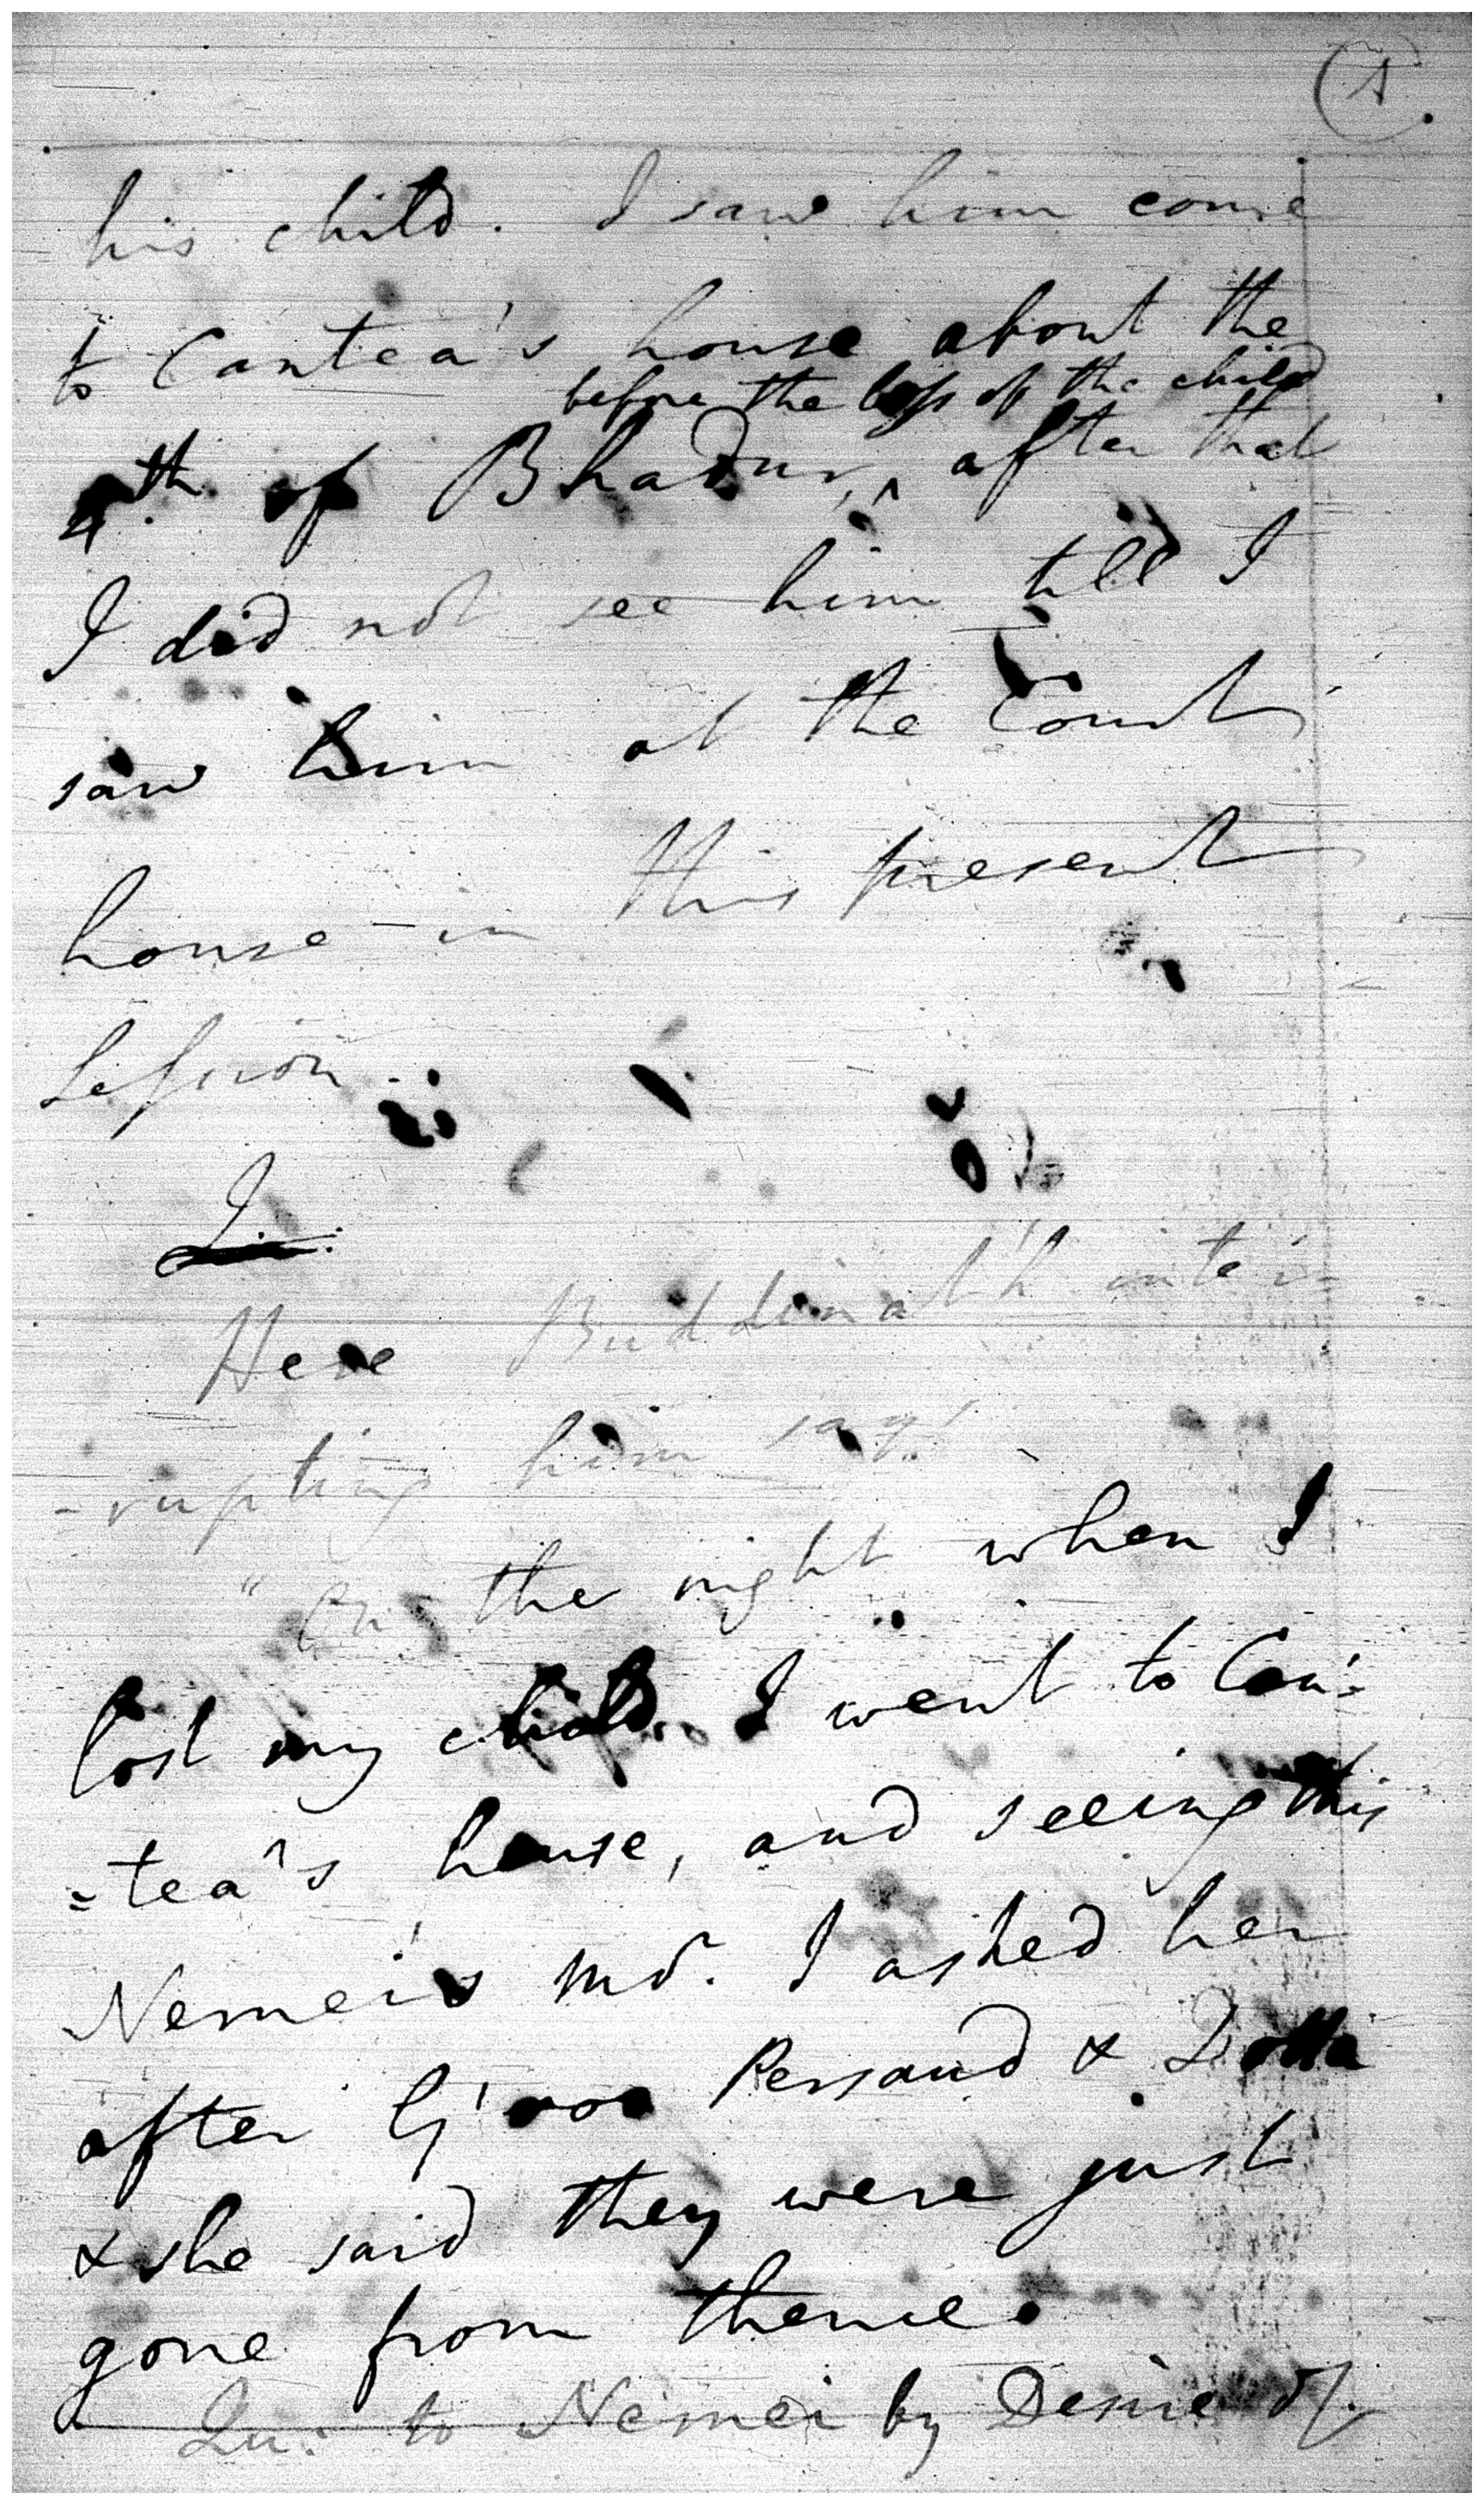 his child. I saw him come
to Cantea's house about the
before the loss of the child
4th. of Bhadur, ^ after that
I did not see him till I
saw him at the Court
house in this present
Session.
Here Buddinath inter-
-rupting him says
"On the night when I
lost my child I went to Can=
=tea's house, and seeing this
Nemei's Mor. I asked her
after G'roo Persaud &
& she said they were just
gone from thence.
Qu: to Nemei by Desire of